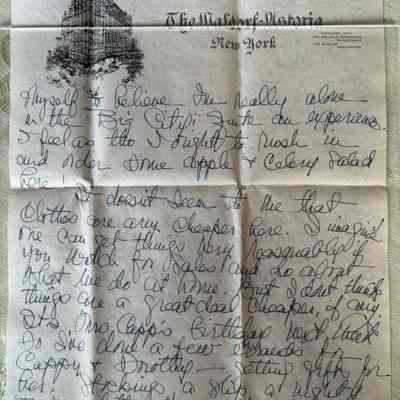 The Waldorf-Astoria
New York
myself to believe I'm really alone
in the Big City! Quite an experience.
I feel as tho I ought to rush in
and order some apple & celery salad
here!
It doesn't seem to me that
clothes are any cheaper here. I imagine
one can get things very reasonably if
you watch for sales and do about
what we do at home. But I don't think
things are a great deal cheaper, if any.
It's Mrs. Capp's Birthday next week
So I've done a few errands for
Cappy & Dorothy - getting gifts for
her. Stockings a slip, a nightie